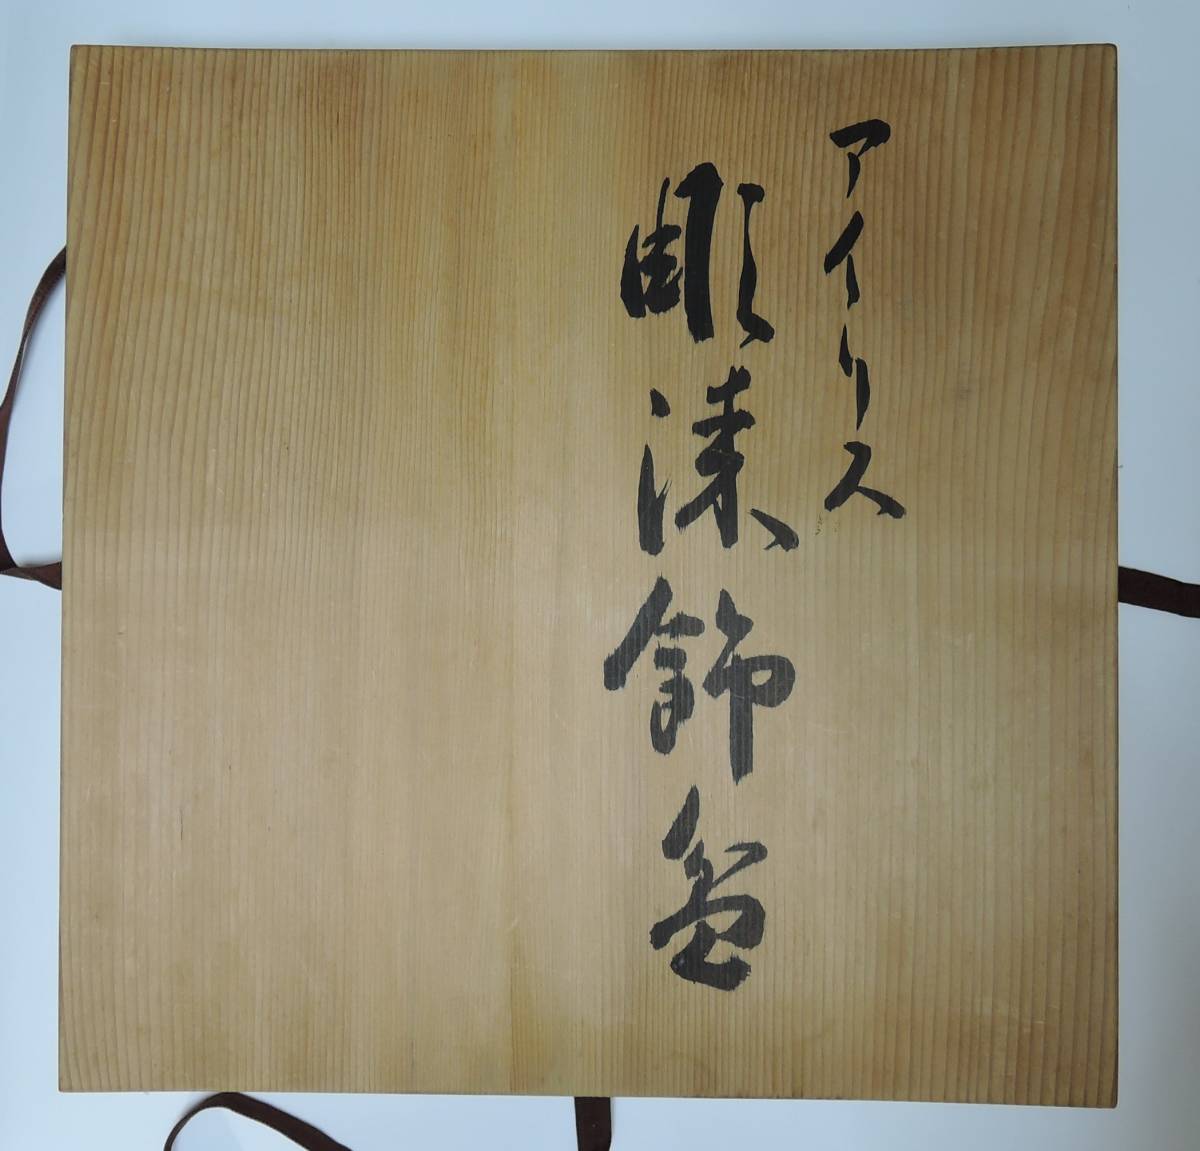 アイリス
彫漆飾盆